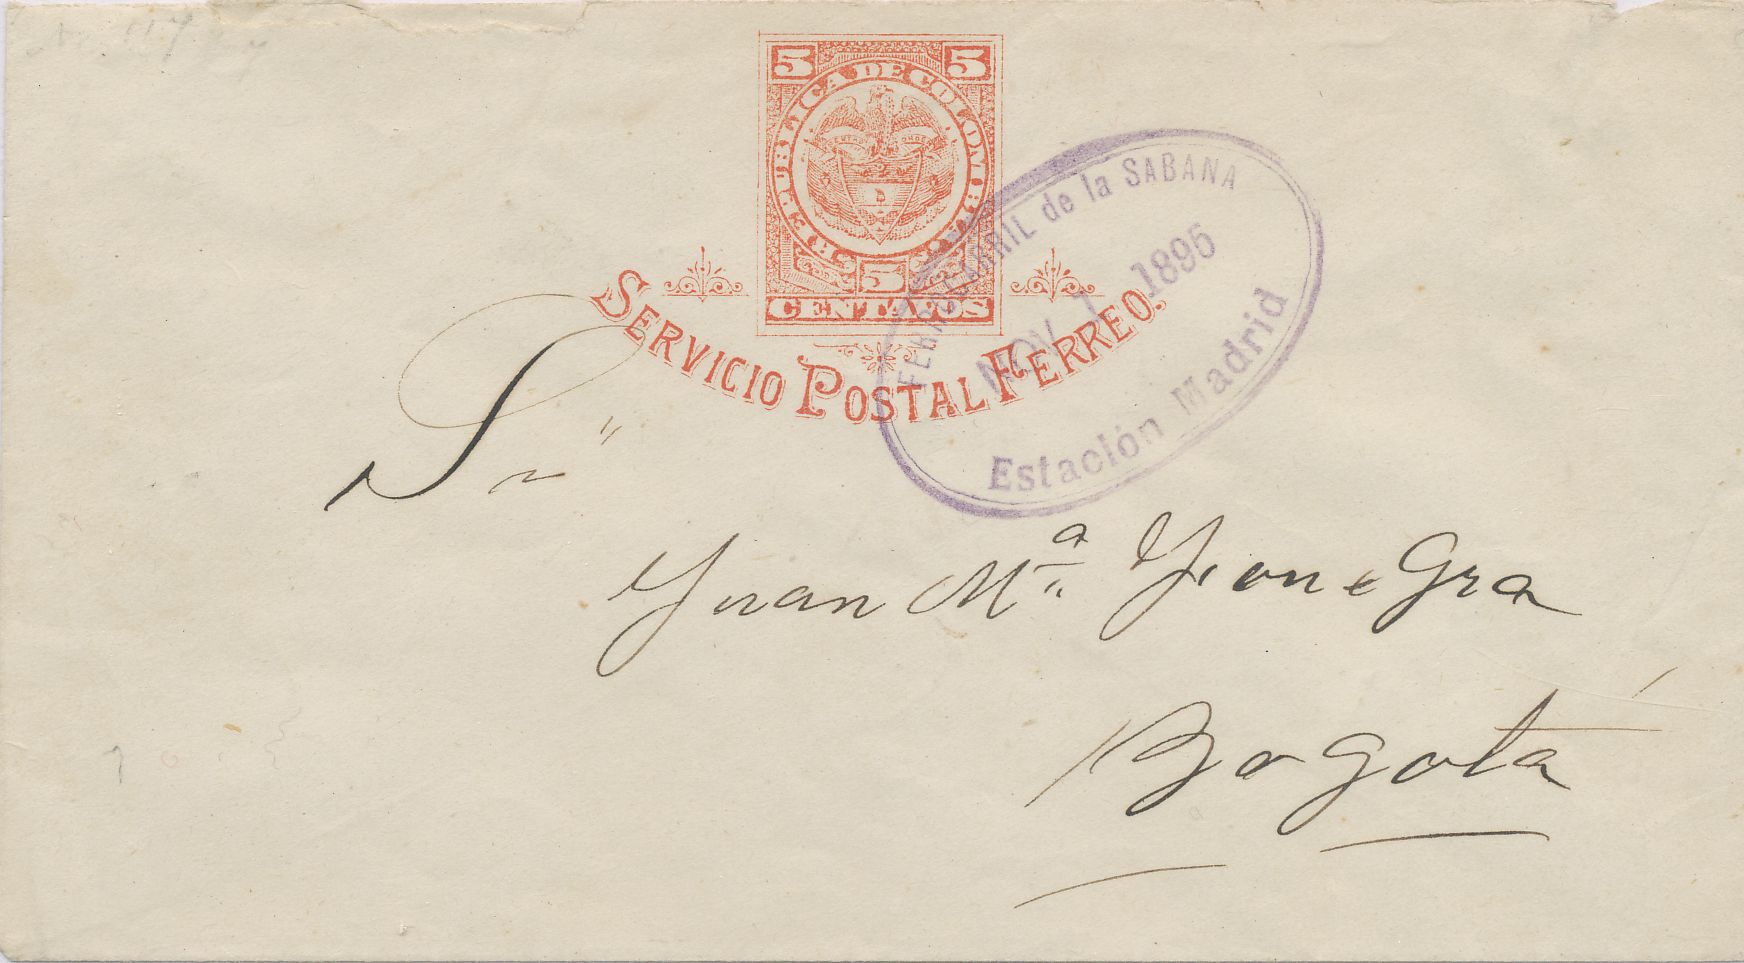 5 5
REPUBLICA DE COLOMBIA
5
CENTAVOS
SERVICIO POSTAL FERREO.
FERROCARRIL de la SABANA
NOV 1 1896
Estación Madrid
Sr
Juan Ma
Bogotá